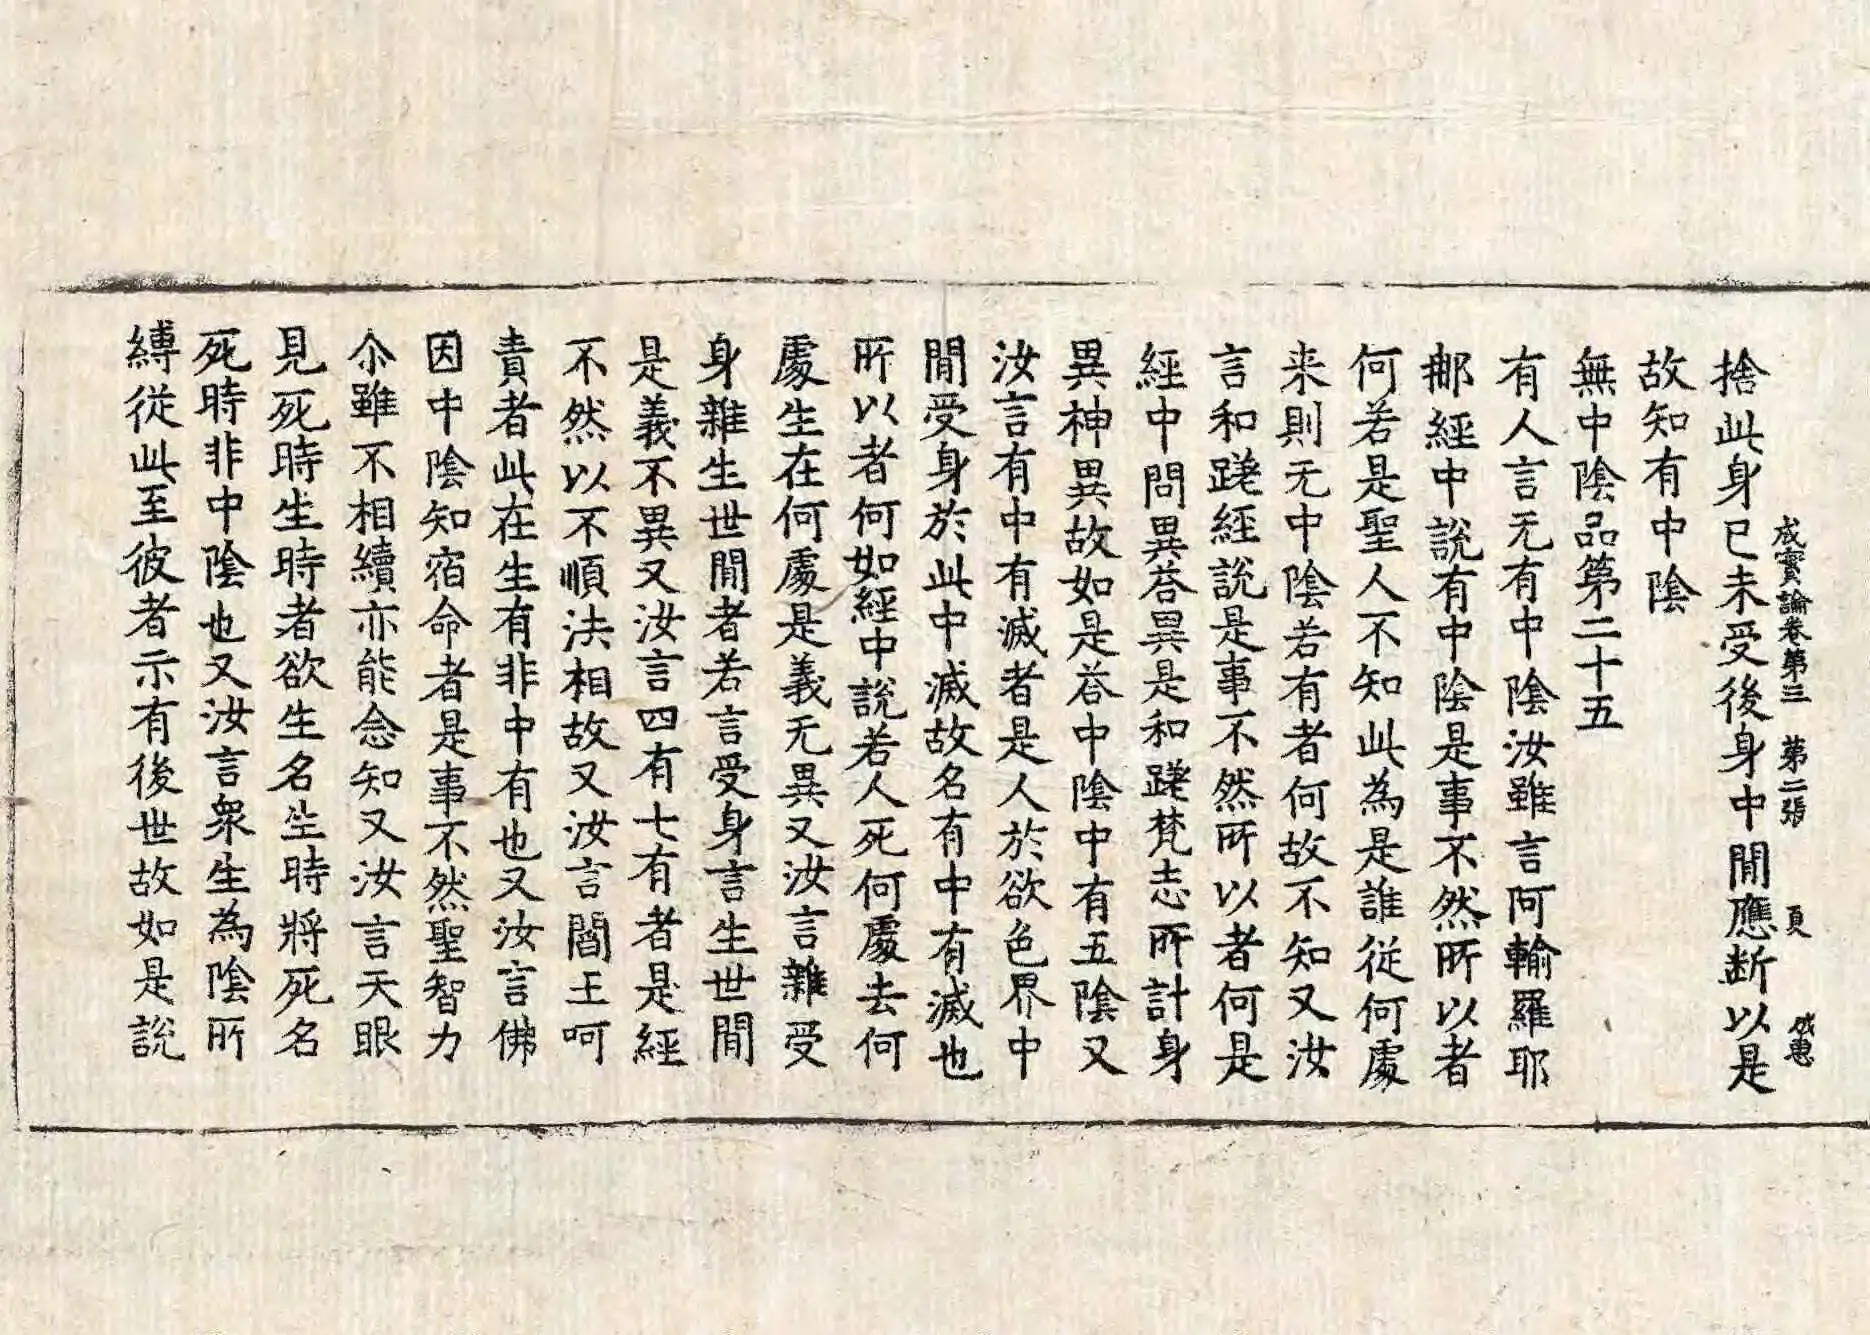 成實論卷第三 第二張 頁
捨此身已未受後身中閒應断以是
故知有中陰
無中陰品第二十五
有人言无有中陰汝雖言阿輸羅耶
那經中說有中陰是事不然所以者
何若是聖人不知此為是誰從何處
来則无中陰若有者何故不知又汝
言和蹉經說是事不然所以者何是
經中問異荅異是和蹉梵志所計身
異神異故如是荅中陰中有五陰又
汝言有中有滅者是人於欲色界中
閒受身於此中滅故名有中有滅也
所以者何如經中說若人死何處去何
處生在何處是義无異又汝言雜受
身雜生世閒者若言受身言生世閒
是義不異又汝言四有七有者是經
不然以不順法相故又汝言閻王呵
責者此在生有非中有也又汝言佛
因中陰知宿命者是事不然聖智力
尒雖不相續亦能念知又汝言天眼
見死時生時者欲生名生時將死名
死時非中陰也又汝言衆生為陰所
縛從此至彼者示有後世故如是說